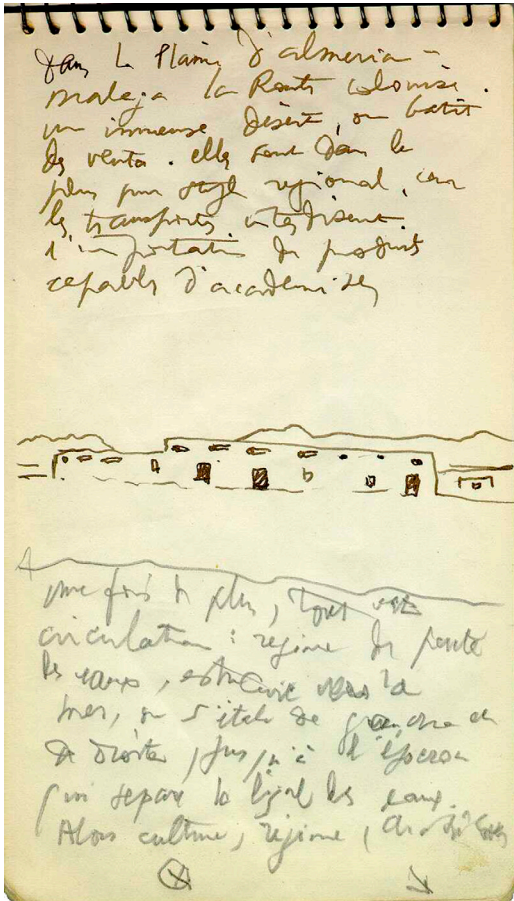 Dans la Plaine d'almeria -
malaga la Route colonise.
un immense désert, on batit
des venta. elles sont dans le
plus pur style regional, car
les transports interdisent
l'importation de produits
capables d'académiser
une fois de plus, tout est
circulation : regime de pente
des eaux, vers la
mer, on s'étale de gauche et
de droite, jusqu'à l'éperon
qui separe la ligne des eaux.
Alors culture, régime,